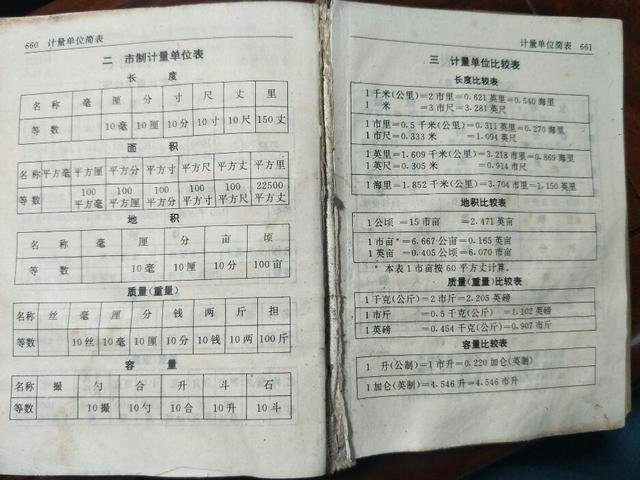 660 计量单位简表
二 市制计量单位表
长 度
名 称 毫 厘 分 寸 尺 丈 里
等 数 10毫 10厘 10分 10寸 10尺 150丈
面 积
名 称 平方毫 平方厘 平方分 平方寸 平方尺 平方丈 平方里
等 数 100平方毫 100平方厘 100平方分 100平方寸 100平方尺 22500平方丈
地 积
名 称 毫 厘 分 亩 顷
等 数 10毫 10厘 10分 100亩
质量(重量)
名称 丝 毫 厘 分 钱 两 斤 担
等数 10丝 10毫 10厘 10分 10钱 10两 100斤
容 量
名称 撮 勺 合 升 斗 石
等数 10撮 10勺 10合 10升 10斗
计量单位简表 661
三 计量单位比较表
长度比较表
1千米(公里)=2市里=0.621英里=0.540海里
1 米 =3市尺=3.281英尺
1市里=0.5千米(公里)=0.311英里=0.270海里
1市尺=0.333米 =1.094英尺
1英里=1.609千米(公里)=3.218市里=0.869海里
1英尺=0.305米 =0.914市尺
1海里=1.852千米(公里)=3.704市里=1.150英里
地积比较表
1公顷 =15市亩 =2.471英亩
1市亩*=6.667公亩=0.165英亩
1英亩 =0.405公顷=6.070市亩
* 本表1市亩按60平方丈计算。
质量(重量)比较表
1千克(公斤)=2市斤=2.205英磅
1市斤 =0.5千克(公斤) =1.102英磅
1英磅 =0.454千克(公斤)=0.907市斤
容量比较表
1 升(公制)=1市升=0.220加仑(英制)
1加仑(英制)=4.546升=4.546市升